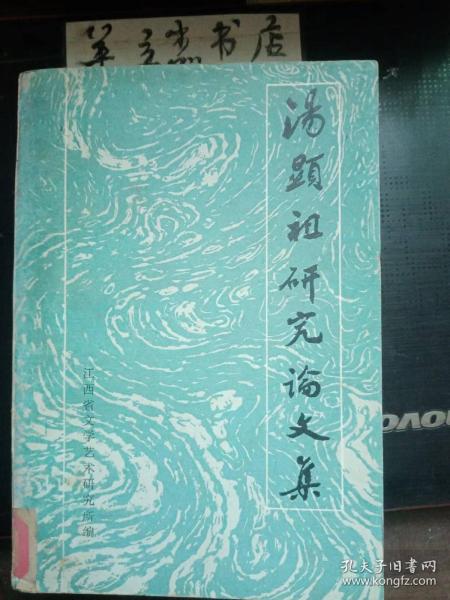 书店
湯顯祖研究論文集
江西省文学艺术研究所编
孔夫子旧书网
www.kongfz.com